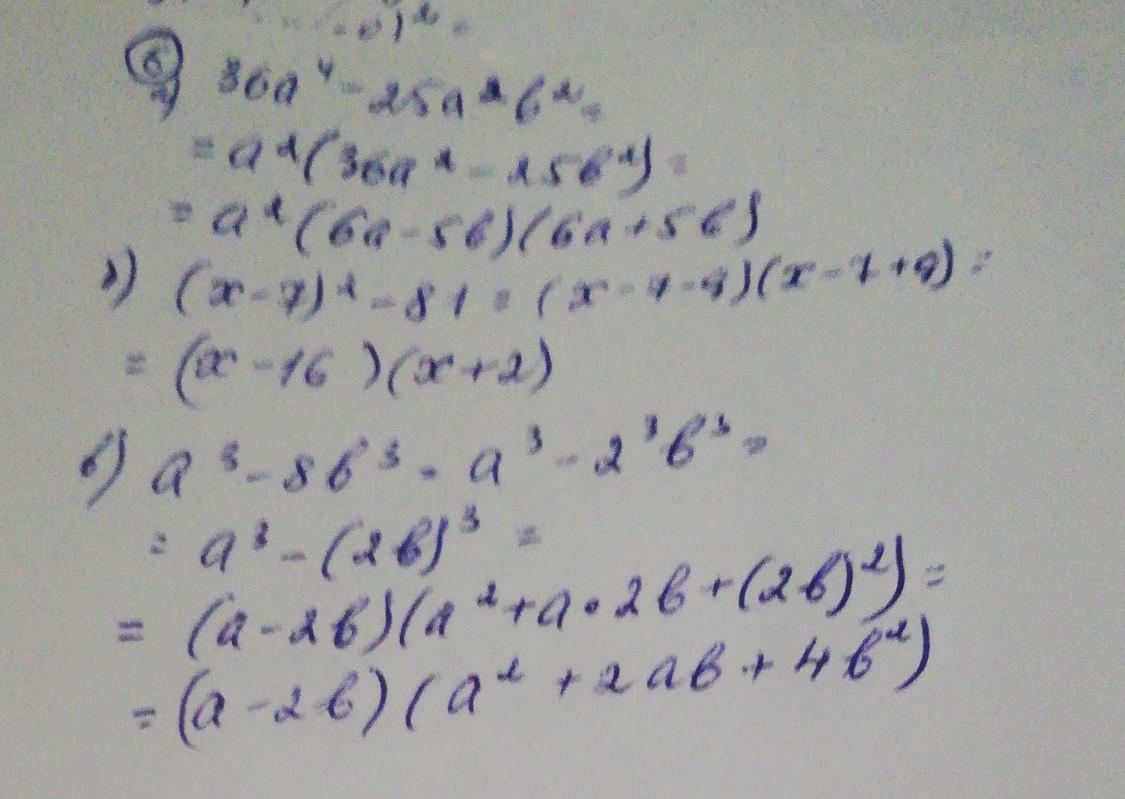 )² =
6
а) 36a⁴ - 25a²b² =
= a²(36a² - 25b²) =
= a²(6a - 5b)(6a + 5b)
(x - 7)² - 81 = (x - 7 - 9)(x - 7 + 9) =
= (x - 16)(x + 2)
в) a³ - 8b³ = a³ - 2³b³ =
= a³ - (2b)³ =
= (a - 2b)(a² + a · 2b + (2b)²) =
= (a - 2b)(a² + 2ab + 4b²)